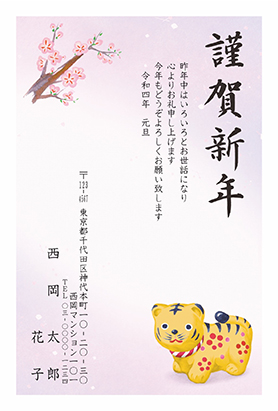 謹賀新年
昨年中はいろいろとお世話になり
心よりお礼申し上げます
今年もどうぞよろしくお願い致します
令和四年 元旦
〒123-4567 東京都千代田区神代本町一〇-二〇-三〇
西岡マンション一〇一
TEL 〇三-〇〇〇〇-一二三四
西岡 太郎
花子